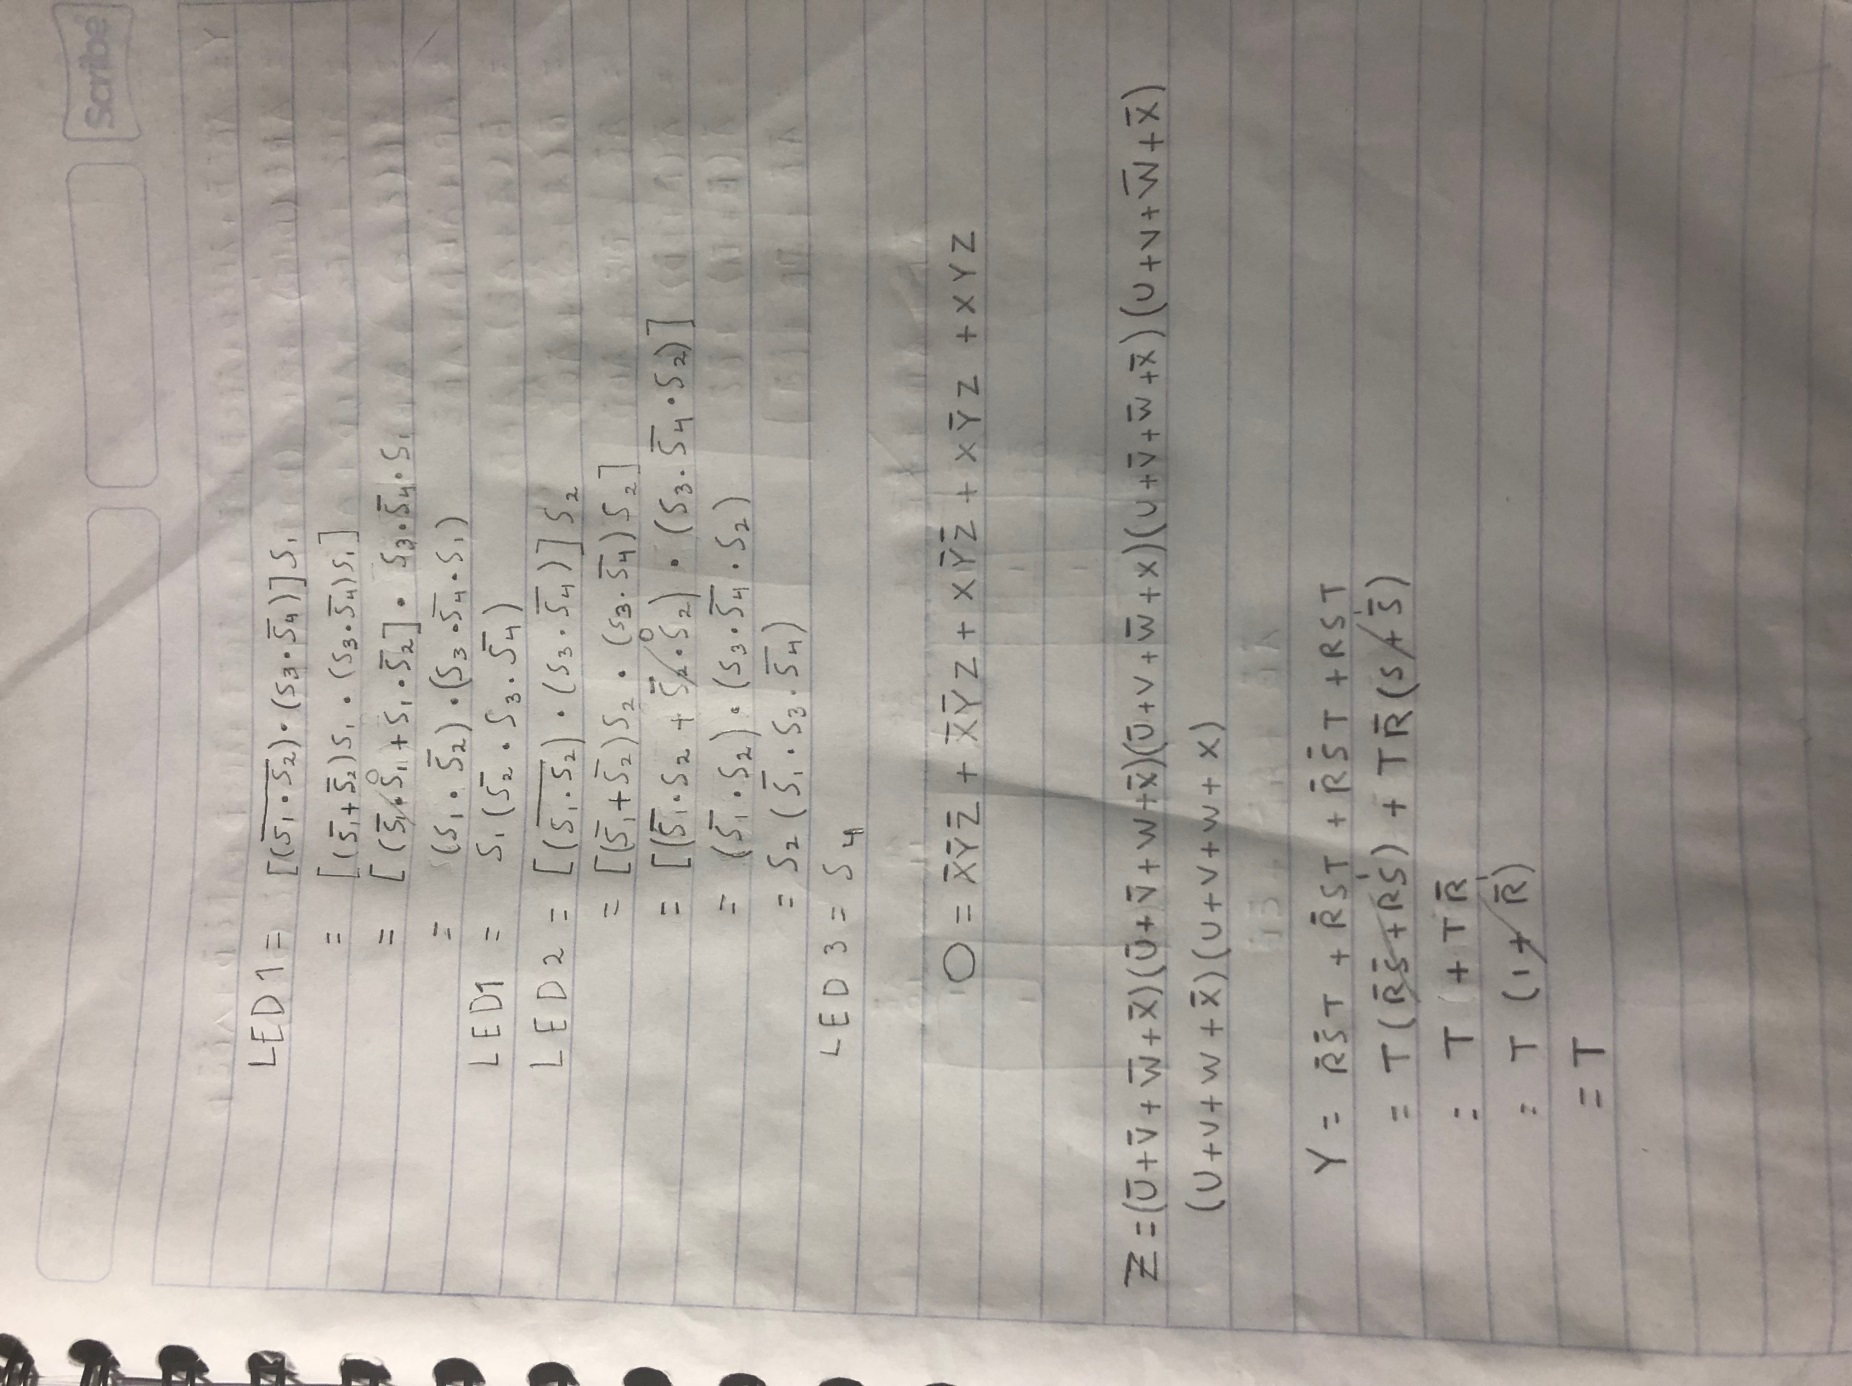 Scribe
LED 1 = [(\overline{S₁·S₂})·(S₃·S̄₄)] S₁
= [(S̄₁+S̄₂)S₁·(S₃·S̄₄)S₁]
= [(S̄₁·S₁⁰+S₁·S̄₂]·S₃·S̄₄·S₁
= (S₁·S̄₂)·(S₃·S̄₄·S₁)
LED1 = S₁(S̄₂·S₃·S̄₄)
LED 2 = [(\overline{S₁·S₂})·(S₃·S̄₄)] S₂
= [(S̄₁+S̄₂)S₂·(S₃·S̄₄)S₂]
= [(S̄₁·S₂+S̄₂·S₂⁰)·(S₃·S̄₄·S₂)]
= (S̄₁·S₂)·(S₃·S̄₄·S₂)
= S₂(S̄₁·S₃·S̄₄)
LED 3 = S₄
O = X̄ȲZ̄ + X̄ȲZ + XȲZ̄ + XȲZ + XYZ
Z = (Ū+V̄+W̄+X̄)(Ū+V̄+W+X̄)(Ū+V+W̄+X)(U+V̄+W̄+X̄)(U+V+W̄+X̄)
(U+V+W+X̄)(U+V+W+X)
Y = R̄S̄T + R̄ST + R̄S̄T + RST
= T(R̄S̄+RS) + TR̄(S+S̄)
= T + TR̄
= T (1+R̄)
= T